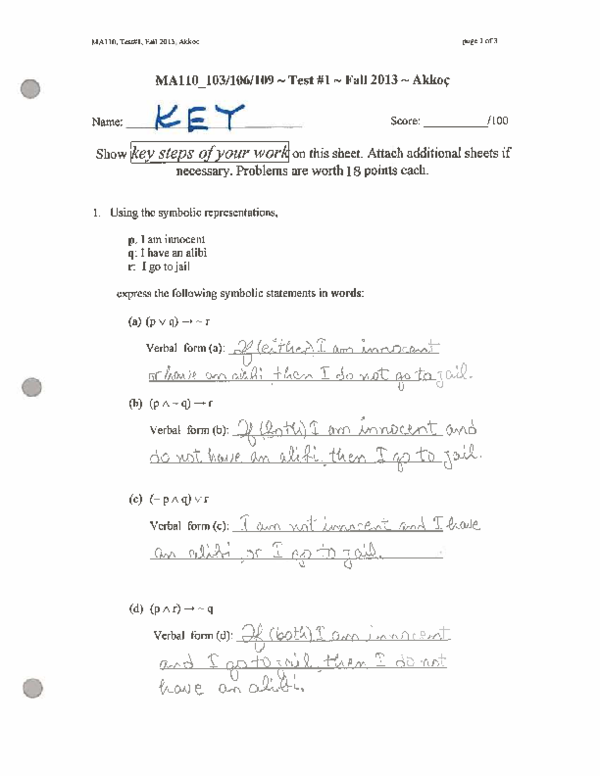 MA110, Test#1, Fall 2013, Akkoç page 1 of 3
MA110_103/106/109 ~ Test #1 ~ Fall 2013 ~ Akkoç
Name: KEY Score: /100
Show key steps of your work on this sheet. Attach additional sheets if
necessary. Problems are worth 18 points each.
1. Using the symbolic representations,
p: I am innocent
q: I have an alibi
r: I go to jail
express the following symbolic statements in words:
(a) (p ∨ q) → ~ r
Verbal form (a): If (either) I am innocent
or have an alibi, then I do not go to jail.
(b) (p ∧ ~ q) → r
Verbal form (b): If (both) I am innocent and
do not have an alibi, then I go to jail.
(c) (~ p ∧ q) ∨ r
Verbal form (c): I am not innocent and I have
an alibi, or I go to jail.
(d) (p ∧ r) → ~ q
Verbal form (d): If (both) I am innocent
and I go to jail, then I do not
have an alibi.